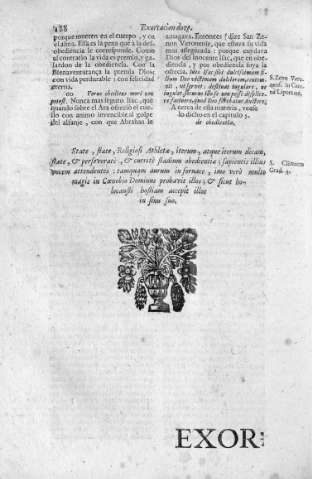 488 Exortacion doze,
porque mueren en el cuerpo, y en
el alma. Esta es la pena que à la desobediencia
le corresponde. Como
al contrario la vida es premio, y galardon
de la obediencia. Con la
Bienaventurança la premia Dios;
con vida perdurable; con felicidad
eterna.
60 Verus obediens mori non
potest. Nunca mas seguro Isac, que
quando sube al Ara ofrecido el cuello
con animo invencible al golpe
del alfanje, con que Abrahan le
amagava. Entonces (dize San Zenon
Veronense, que estava su vida
mas assegurada; porque cuydava
Dios del inocente Isac, que en obediencia,
y por obediencia suya la
ofrecia.
lo dicho en el capitulo 5.
de obedientia.
S. Zeno Vero
State, state, Religiosi Athletæ, iterum, atque iterum dicam,
state, & perseverate, & currite stadium obedientiæ; sapientis illius
vocem attendentes: tamquam aurum in fornace, imo verò multo
magis in Cœnobio Dominus probavit illos; & sicut holocausti
hostiam accepit illos
in sinu suo.
S. Climacus
Grad. 4.
EXOR-